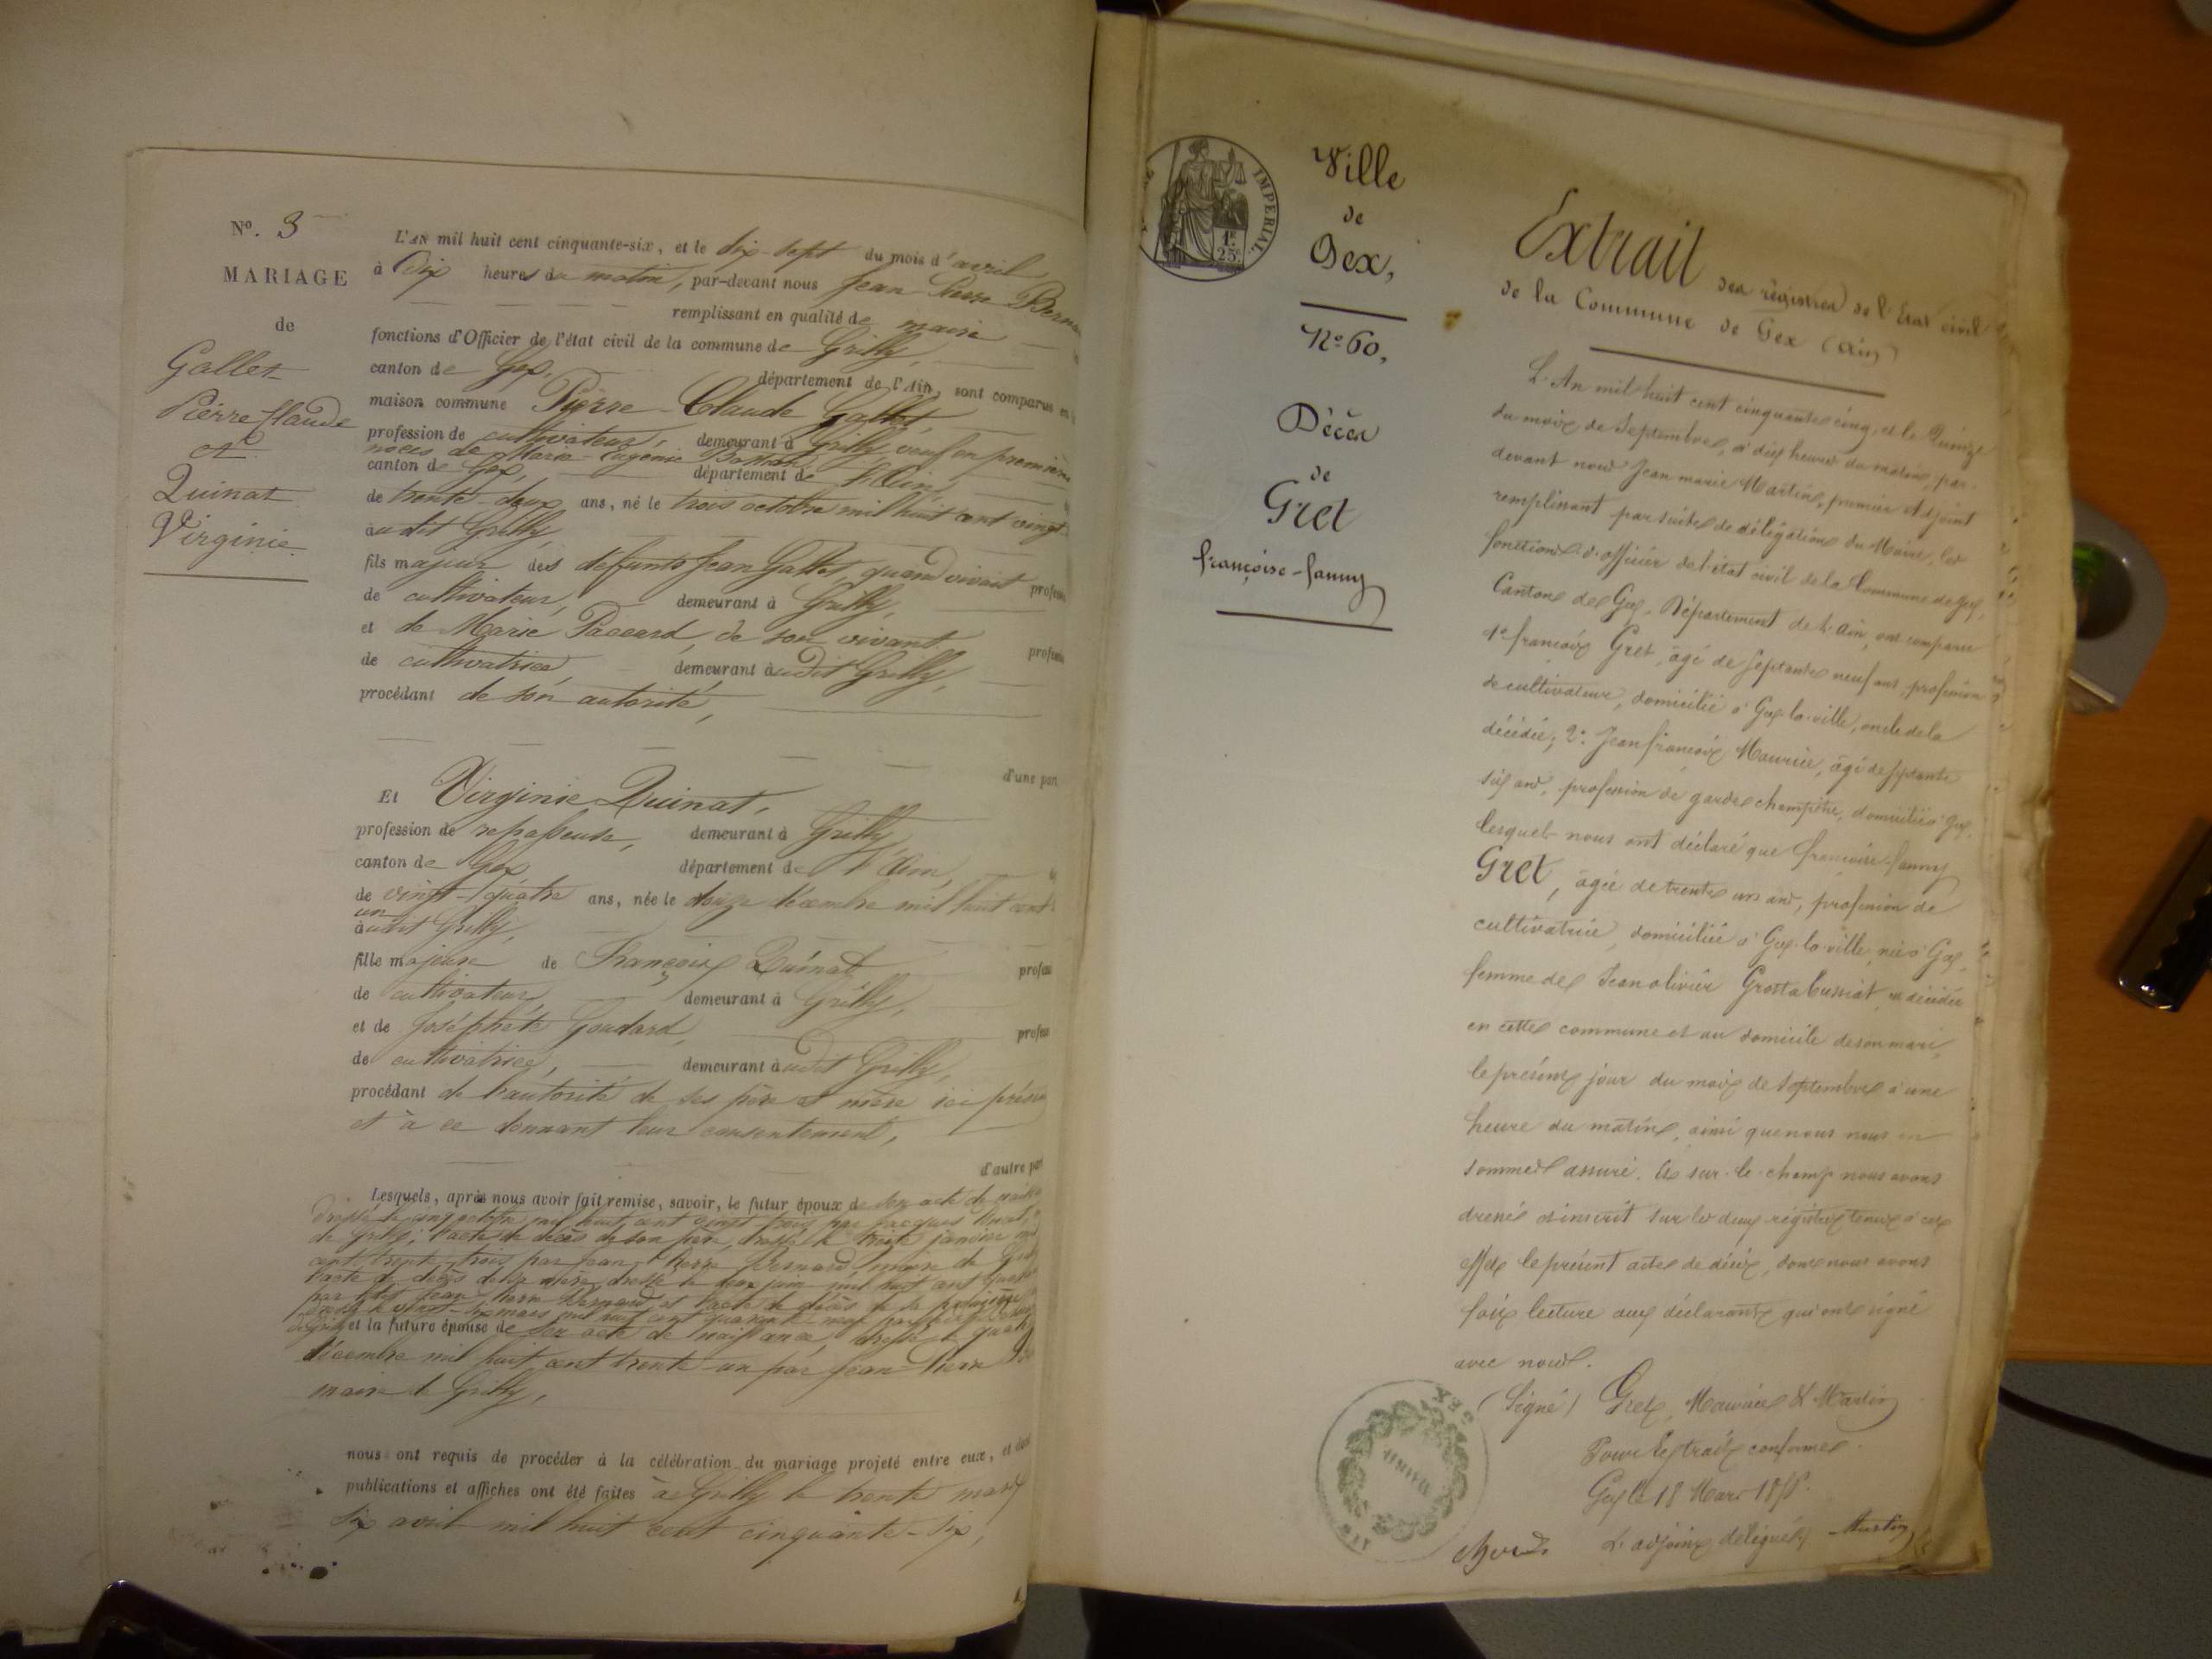 N°. 3
MARIAGE
de
Gallet
Pierre Claude
et
Duinat
Virginie
L'AN mil huit cent cinquante-six, et le dix-sept du mois d'avril
à Dix heures du matin, par-devant nous Jean Pierre
remplissant en qualité de maire
fonctions d'Officier de l'état civil de la commune de Grilly,
canton de Gex, département de l'Ain, sont comparus en
maison commune Pierre-Claude Gallet,
profession de cultivateur, demeurant à Grilly, veuf en premières
noces de Marie-Eugénie
canton de Gex, département de l'Ain,
de trente-deux ans, né le trois octobre mil huit cent vingt
audit Grilly,
fils majeur des défunts Jean Gallet, quand vivait
de cultivateur, demeurant à Grilly,
et de Marie Paccard, de son vivant
de cultivatrice, demeurant audit Grilly,
procédant de son autorité,
d'une part
Et Virginie Duinat,
profession de repasseuse, demeurant à Grilly
canton de Gex département de l'Ain,
de vingt-quatre ans, née le douze décembre mil huit cent
un
audit Grilly,
fille majeure de François Duinat
de cultivateur, demeurant à Grilly,
et de Joséphte Goudard,
de cultivatrice, demeurant audit Grilly,
procédant de l'autorité de ses père et mère ici
et à ce donnant leur consentement,
d'autre part
Lesquels, après nous avoir fait remise, savoir, le futur époux de son acte de
dressé le cinq octobre mil huit cent vingt trois par Jacques
de Grilly; l'acte de décès de son père, dressé le trente janvier
cent trente-trois par Jean Pierre Bernard, maire de
l'acte de décès de sa mère dressé le deux juin mil huit cent
par ledit Jean Pierre Bernard et l'acte de décès de sa première
et la future épouse de son acte de naissance, dressé le
décembre mil huit cent trente-un par Jean Pierre
maire de Grilly,
nous ont requis de procéder à la célébration du mariage projeté entre eux, et
publications et affiches ont été faites à Grilly le trente mars
six avril mil huit cent cinquante-six,
IMPERIAL.
1F.
25c
Ville
de
Gex,
N° 60,
Décès
de
Gret
françoise-fanny
Extrait des régistres de l'Etat civil
de la Commune de Gex (Ain)
L'An mil huit cent cinquante cinq, et le Quinze
du mois de Septembre, à dix heures du matin, par
devant nous Jean marie Martin, premier Adjoint
remplissant par suite de délégation du Maire, les
fonctions d'officier de l'état civil de la Commune de Gex,
Canton de Gex, Département de l'Ain, ont comparu
1° françois Gret, âgé de septante neuf ans, profession
de cultivateur, domicilié à Gex-la-ville, oncle de la
décédée; 2° Jean françois Maurice, âgé de septante
six ans, profession de garde champêtre, domicilié à Gex,
lesquels nous ont déclaré que françoise-fanny
Gret, âgée de trente un ans, profession de
cultivatrice, domiciliée à Gex-la-ville, née à Gex,
femme de Jean olivier Grosta bussiat, est décédée
en cette commune et au domicile de son mari,
le présent jour du mois de Septembre à une
heure du matin, ainsi que nous nous en
sommes assuré. Et sur-le-champ nous avons
dressé et inscrit sur les deux régistres tenus à cet
effet le présent acte de décès, dont nous avons
fait lecture aux déclarants qui ont signé
avec nous.
(Signé) Gret, Maurice & Martin
Pour Extrait conforme
Gex le 18 Mars 185
L'adjoint délégué Martin
GEX
MAIRIE